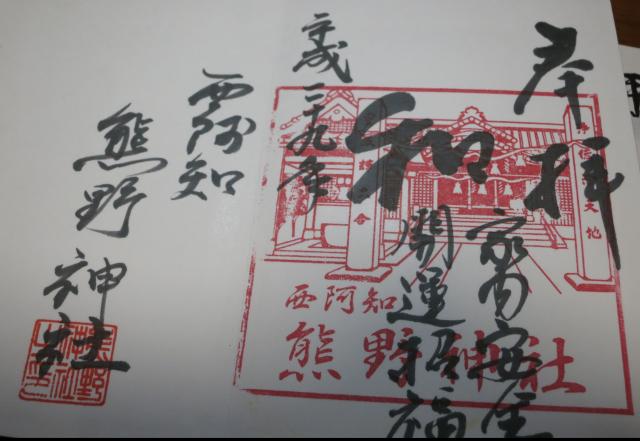 奉拝
家内安全
和
開運招福
平成二十九年
西阿知
熊野神社
西阿知
熊野神社